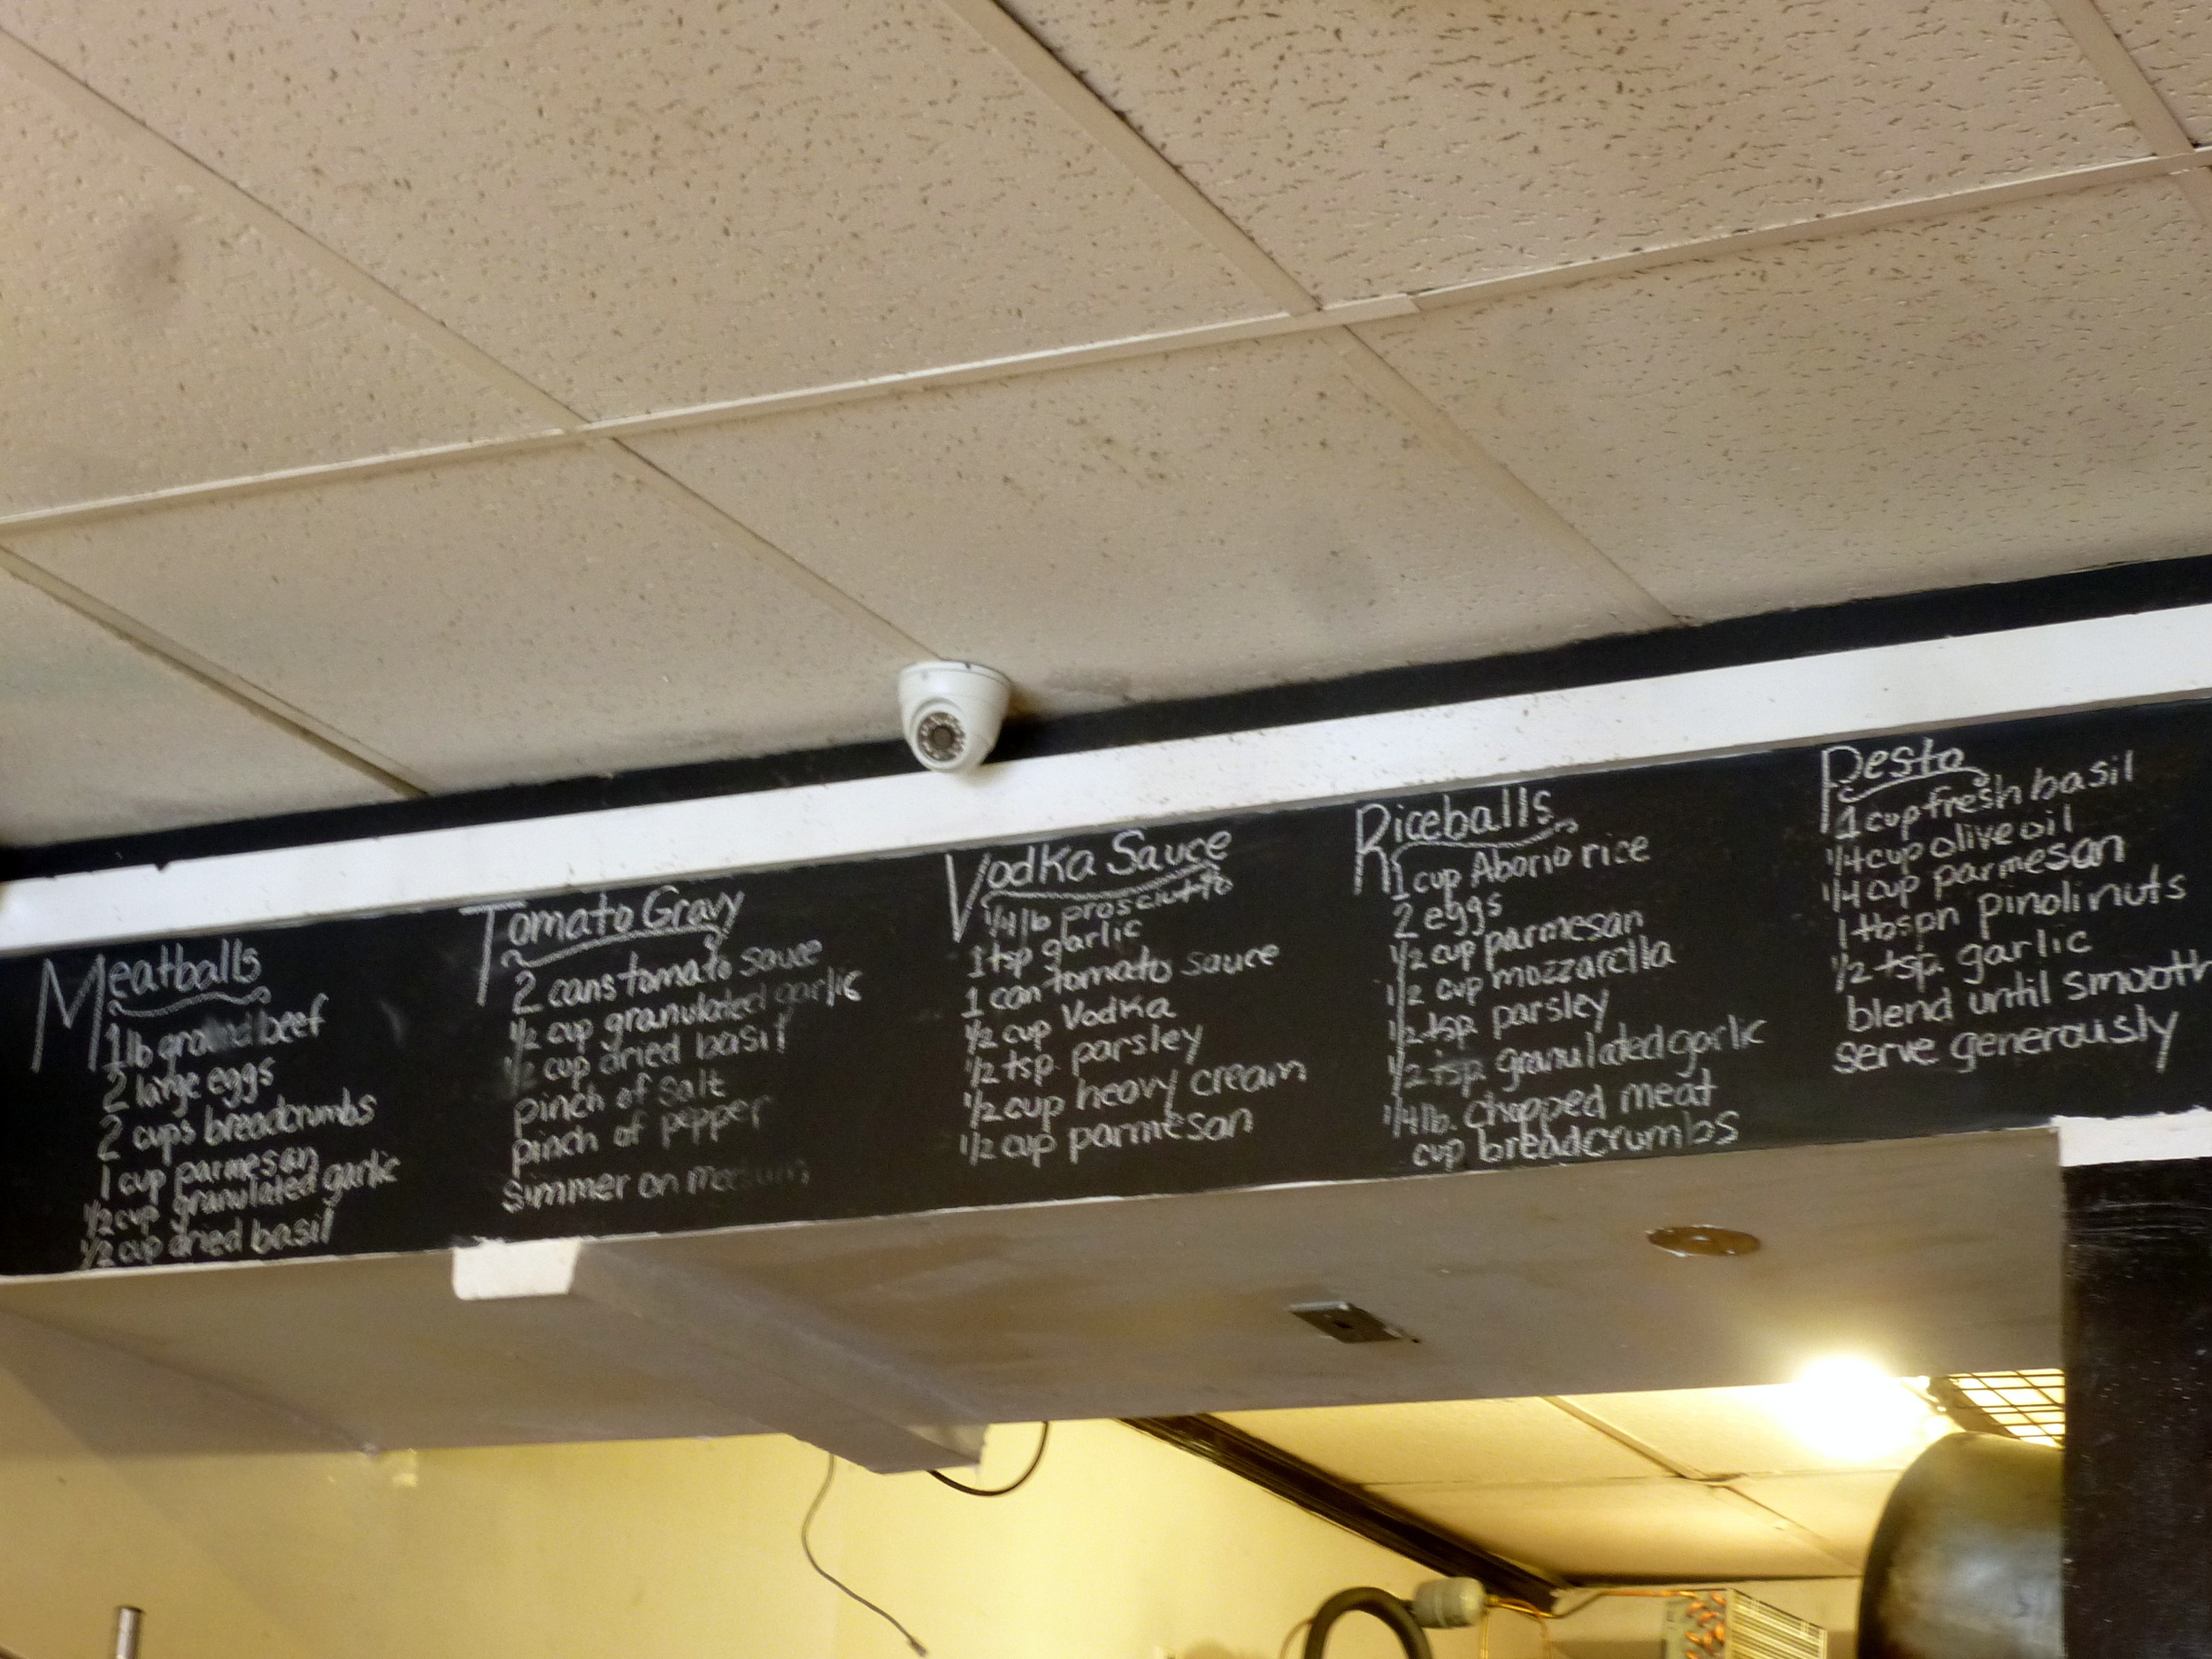 Meatballs
1 lb ground beef
2 large eggs
2 cups breadcrumbs
1 cup parmesan
1/2 cup granulated garlic
1/2 cup dried basil
Tomato Gravy
2 cans tomato sauce
1/2 cup granulated garlic
1/2 cup dried basil
pinch of salt
pinch of pepper
simmer on medium
Vodka Sauce
1/4 lb prosciutto
1 tsp garlic
1 can tomato sauce
1/2 cup Vodka
1/2 tsp. parsley
1/2 cup heavy cream
1/2 cup parmesan
Riceballs
1 cup Aborio rice
2 eggs
1/2 cup parmesan
1/2 cup mozzarella
1/2 tsp. parsley
1/2 tsp. granulated garlic
1/4 lb. chopped meat
cup breadcrumbs
Pesto
1 cup fresh basil
1/4 cup olive oil
1/4 cup parmesan
1 tbspn pinoli nuts
1/2 tsp. garlic
blend until smooth
serve generously